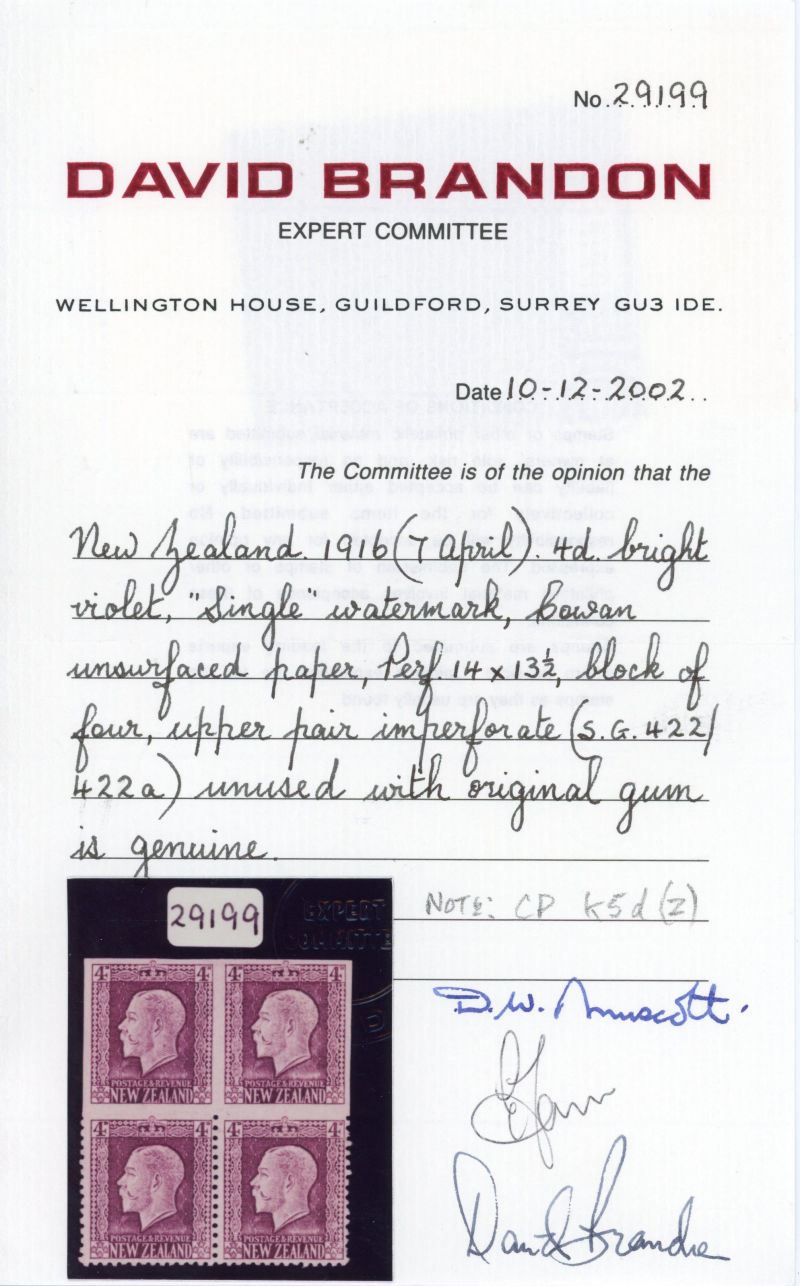 No. 29199
DAVID BRANDON
EXPERT COMMITTEE
WELLINGTON HOUSE, GUILDFORD, SURREY GU3 IDE.
Date 10-12-2002..
The Committee is of the opinion that the
New Zealand. 1916 (7 April). 4d. bright
violet, "Single" watermark, Cowan
unsurfaced paper, Perf 14 x 13½, block of
four, upper pair imperforate (S.G. 422/
422a) unused with original gum
is genuine.
NOTE: CP K5d (Z)
29199
EXPERT
COMMITTEE
4d 4d 4d 4d
POSTAGE & REVENUE POSTAGE & REVENUE
NEW ZEALAND NEW ZEALAND
4d 4d 4d 4d
POSTAGE & REVENUE POSTAGE & REVENUE
NEW ZEALAND NEW ZEALAND
D.W.
David Brandon